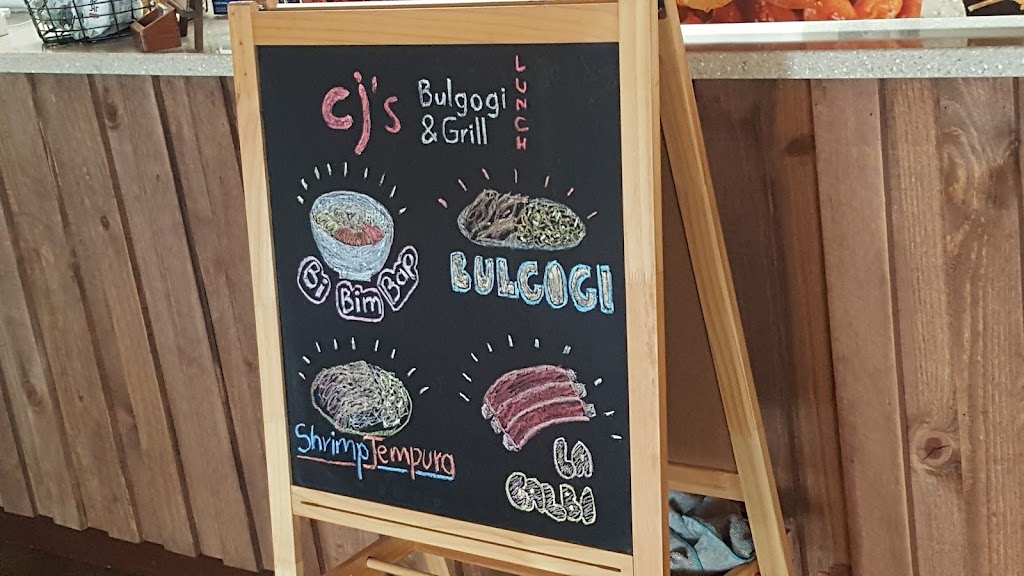 cj's Bulgogi & Grill
LUNCH
Bi Bim Bap
BULGOGI
Shrimp Tempura
LA
GALBI